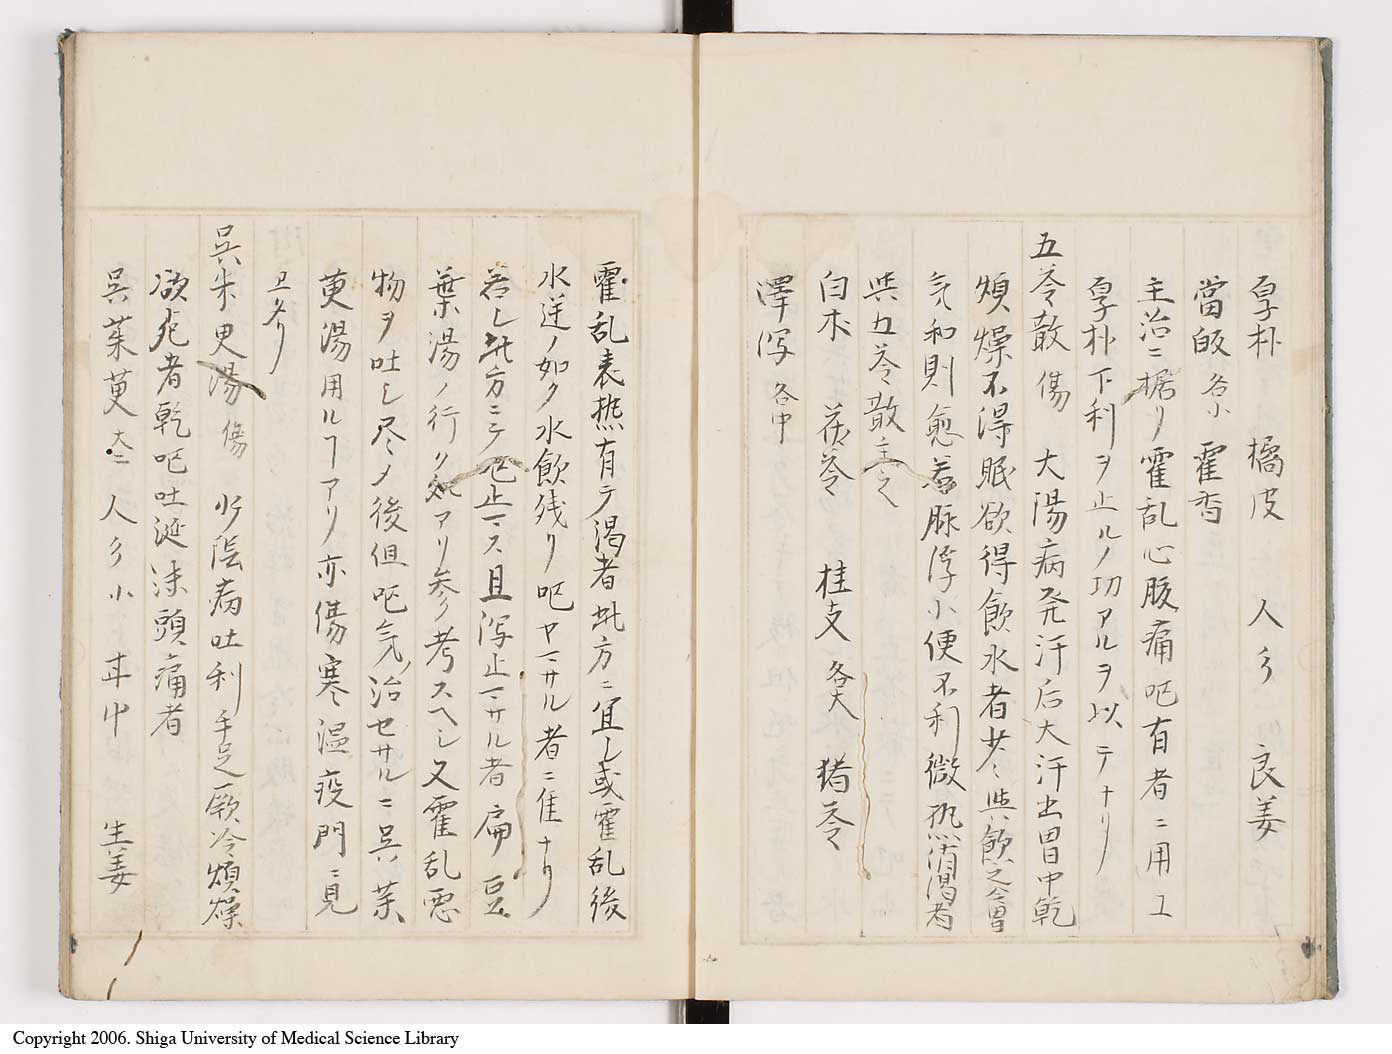 皐朴　橘皮　人參　良姜
當皈 各小　霍香
主治ニ據リ霍乱心腹痛吐有者ニ用ユ
皐朴下利ヲ止ルノ功アルヲ以テナリ
五苓散 傷　大陽病発汗后大汗出胃中乾
煩燥不得眠欲得飲水者少々与飲之令胃
气和則愈若脉浮小便不利微热消渴者
與五苓散主之
白朮　茯苓　桂支 各大　猪苓
澤泻 各中
霍乱表热有テ渴者此方ニ宜し或霍乱後
水逆ノ如ク水飲残リ吐ヤマサル者ニ佳ナリ
若し此方ニテ吐止マス且泻止マサル者扁豆
葉湯ノ行ク処アリ参考スヘシ又霍乱悪
物ヲ吐し尽メ後但吐气治セサルニ呉茱
萸湯用ルヿアリ亦傷寒温疫門ニ見
ヱタリ
呉朱更湯 傷　少陰病吐利手足厥冷煩燥
欲死者乾吐吐涎沫頭痛者
呉茱萸 大ニ　人參 小　草 中　生姜
Copyright 2006. Shiga University of Medical Science Library